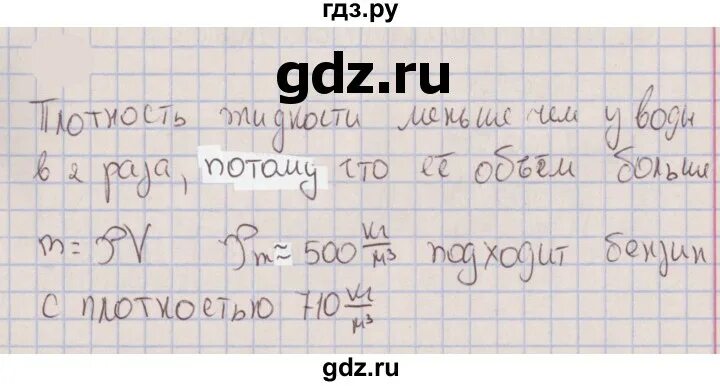 гдз.ру
gdz.ru
Плотность жидкости меньше чем у воды
в 2 раза, потому что её объём больше
m = ρV ρm ≈ 500 кг/м³ подходит бензин
с плотностью 710 кг/м³
gdz.ru